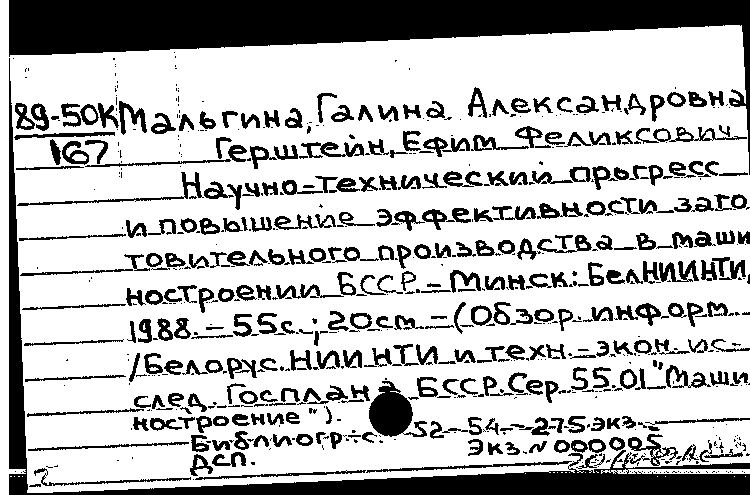 89-50К Мальгина, Галина Александровна
167 Герштейн, Ефим Феликсович
Научно-технический прогресс
и повышение эффективности заго
товительного производства в маши
ностроении БССР.-Минск: БелНИИНТИ,
1988.-55с.; 20см-(Обзор.информ.
/Белорус.НИИНТИ и техн.-экон.ис-
след. Госплана БССР.Сер 55.01 "Маши
ностроение").
Библиогр.:с. 52-54.-275экз.
ДСП. Экз.N 000005